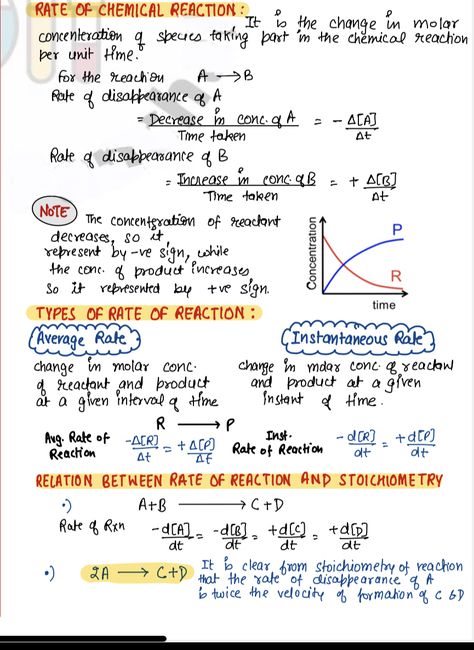 RATE OF CHEMICAL REACTION :
It is the change in molar
concenteration of species taking part in the chemical reaction
per unit time.
For the reaction A → B
Rate of disappearance of A
= Decrease in conc. of A / Time taken = - Δ[A] / Δt
Rate of disappearance of B
= Increase in conc. of B / Time taken = + Δ[B] / Δt
NOTE The concentration of reactant
decreases, so it
represent by -ve sign, while
the conc. of product increases
So it represented by +ve sign.
Concentration
P
R
time
TYPES OF RATE OF REACTION :
Average Rate
change in molar conc.
of reactant and product
at a given interval of time
Instantaneous Rate
change in molar conc. of reactan
and product at a given
instant of time.
R → P
Avg. Rate of Reaction -Δ[R] / Δt = +Δ[P] / Δt
Inst. Rate of Reaction - d[R] / dt = +d[P] / dt
RELATION BETWEEN RATE OF REACTION AND STOICHIOMETRY
•) A+B → C+D
Rate of Rxn -d[A] / dt = -d[B] / dt = +d[C] / dt = +d[D] / dt
•) 2A → C+D It is clear from stoichiometry of reaction
that the rate of disappearance of A
is twice the velocity of formation of C & D